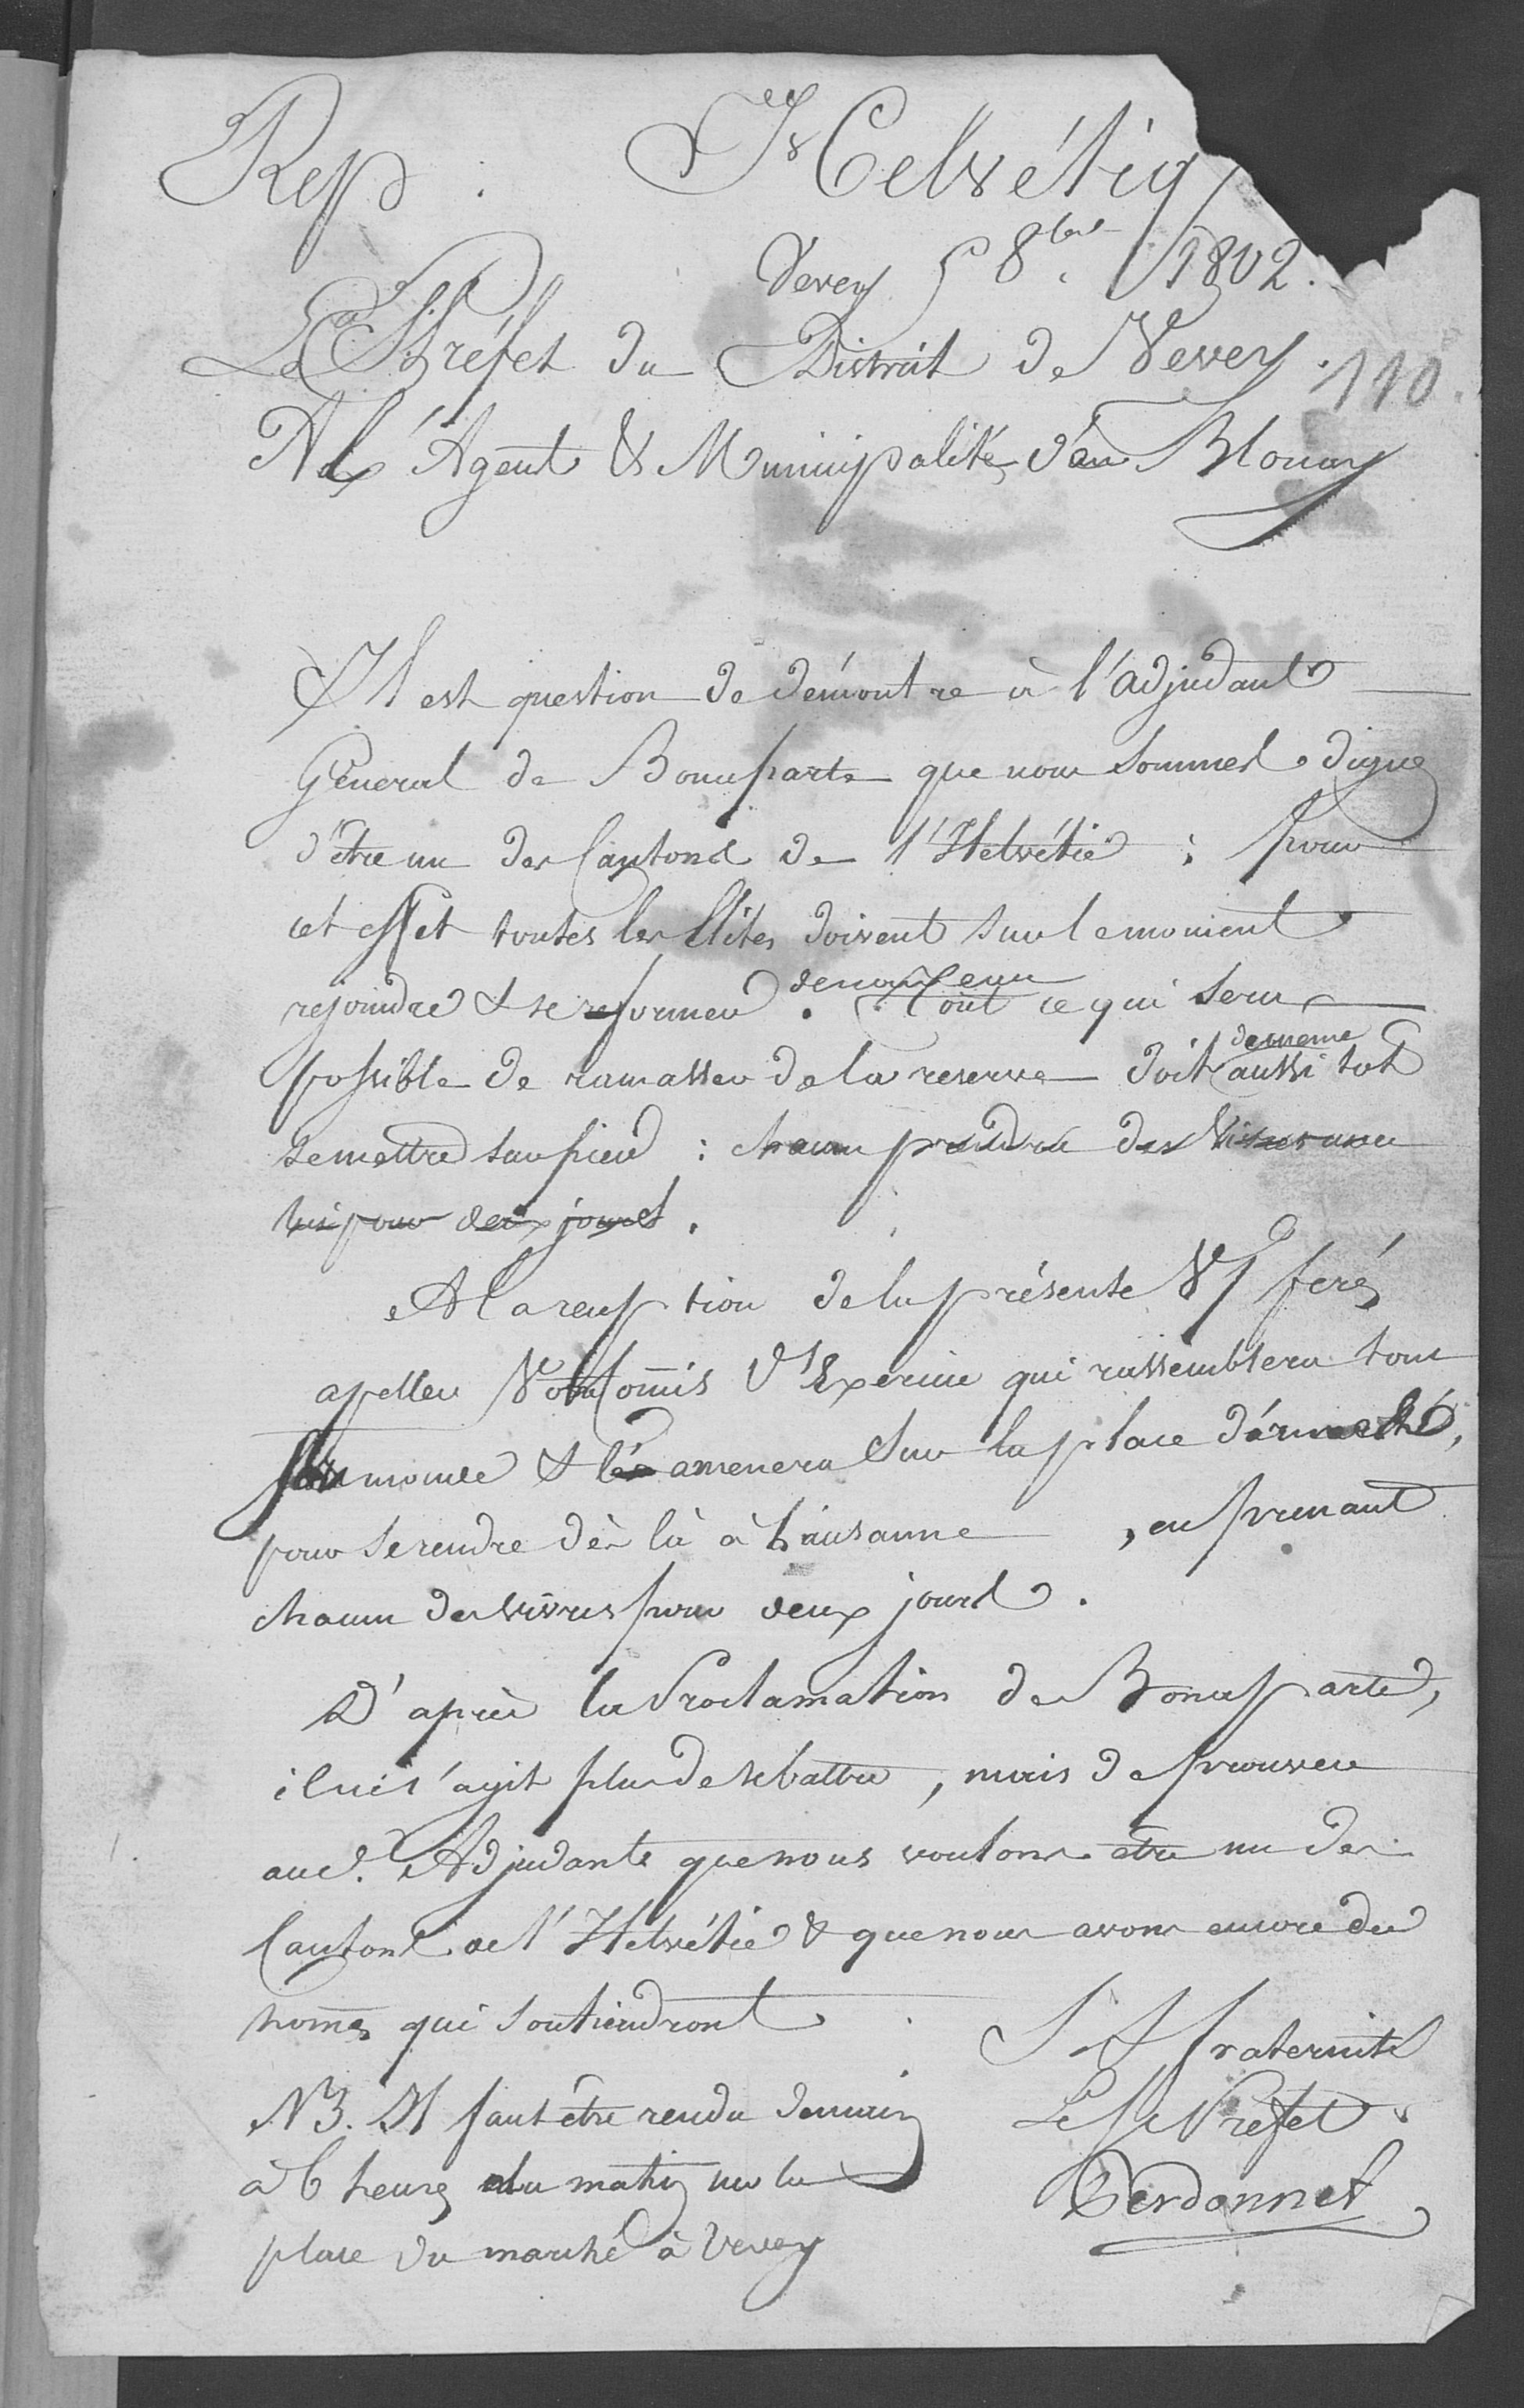 Rep. Helvétiq
Vevey 5 8bre 1802.
Le S Préfet du District de Vevey.
110.
A l'Agent & Municipalité de Blonay
Il est question de démontre à l'adjudant
Géneral de Bonaparte que nous sommes digne
d'être un des Cantons de l'Helvétie ; pour
cet effet toutes les Elites doivent sur le moment
rejoindre & se reformer de nouveau. Tout ce qui sera
possible de ramasser de la reserve doit de meme aussi tot
se mettre sur pied : chacun prendra des vivres avec
lui pour deux jours.
A la reception de la présente Vs ferés
apeller Votre Comis d'Exercice qui rassemblera tout
son monde & les amenera sur la place du marché,
pour se rendre dès là à Lausanne , en prenant
chacun des vivres pour deux jours.
D'après la Proclamation de Bonaparte,
il ne s'agit plus de se battre, mais de prouver
au d.t Adjudant que nous voulons etre un des
Cantons de l'Helvétie & que nous avons encore des
homes qui soutiendront
S & fraternité
NB. Il faut être rendu demain
à 6 heures du matin sur la
place du marché à Vevey
Le S Préfet
Perdonnet